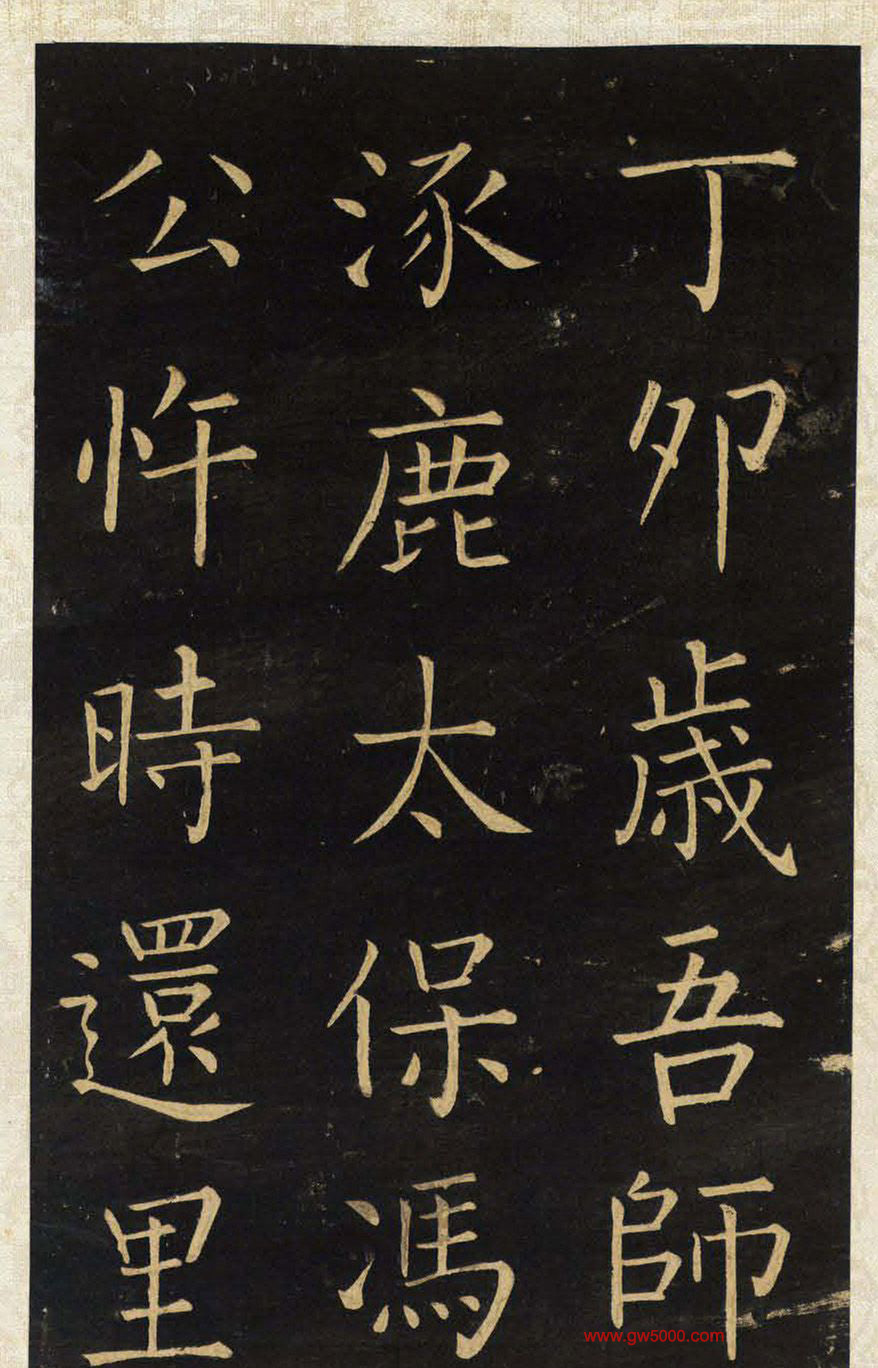 丁卯歲吾師
涿鹿太保馮
公忤時還里
www.gw5000.com